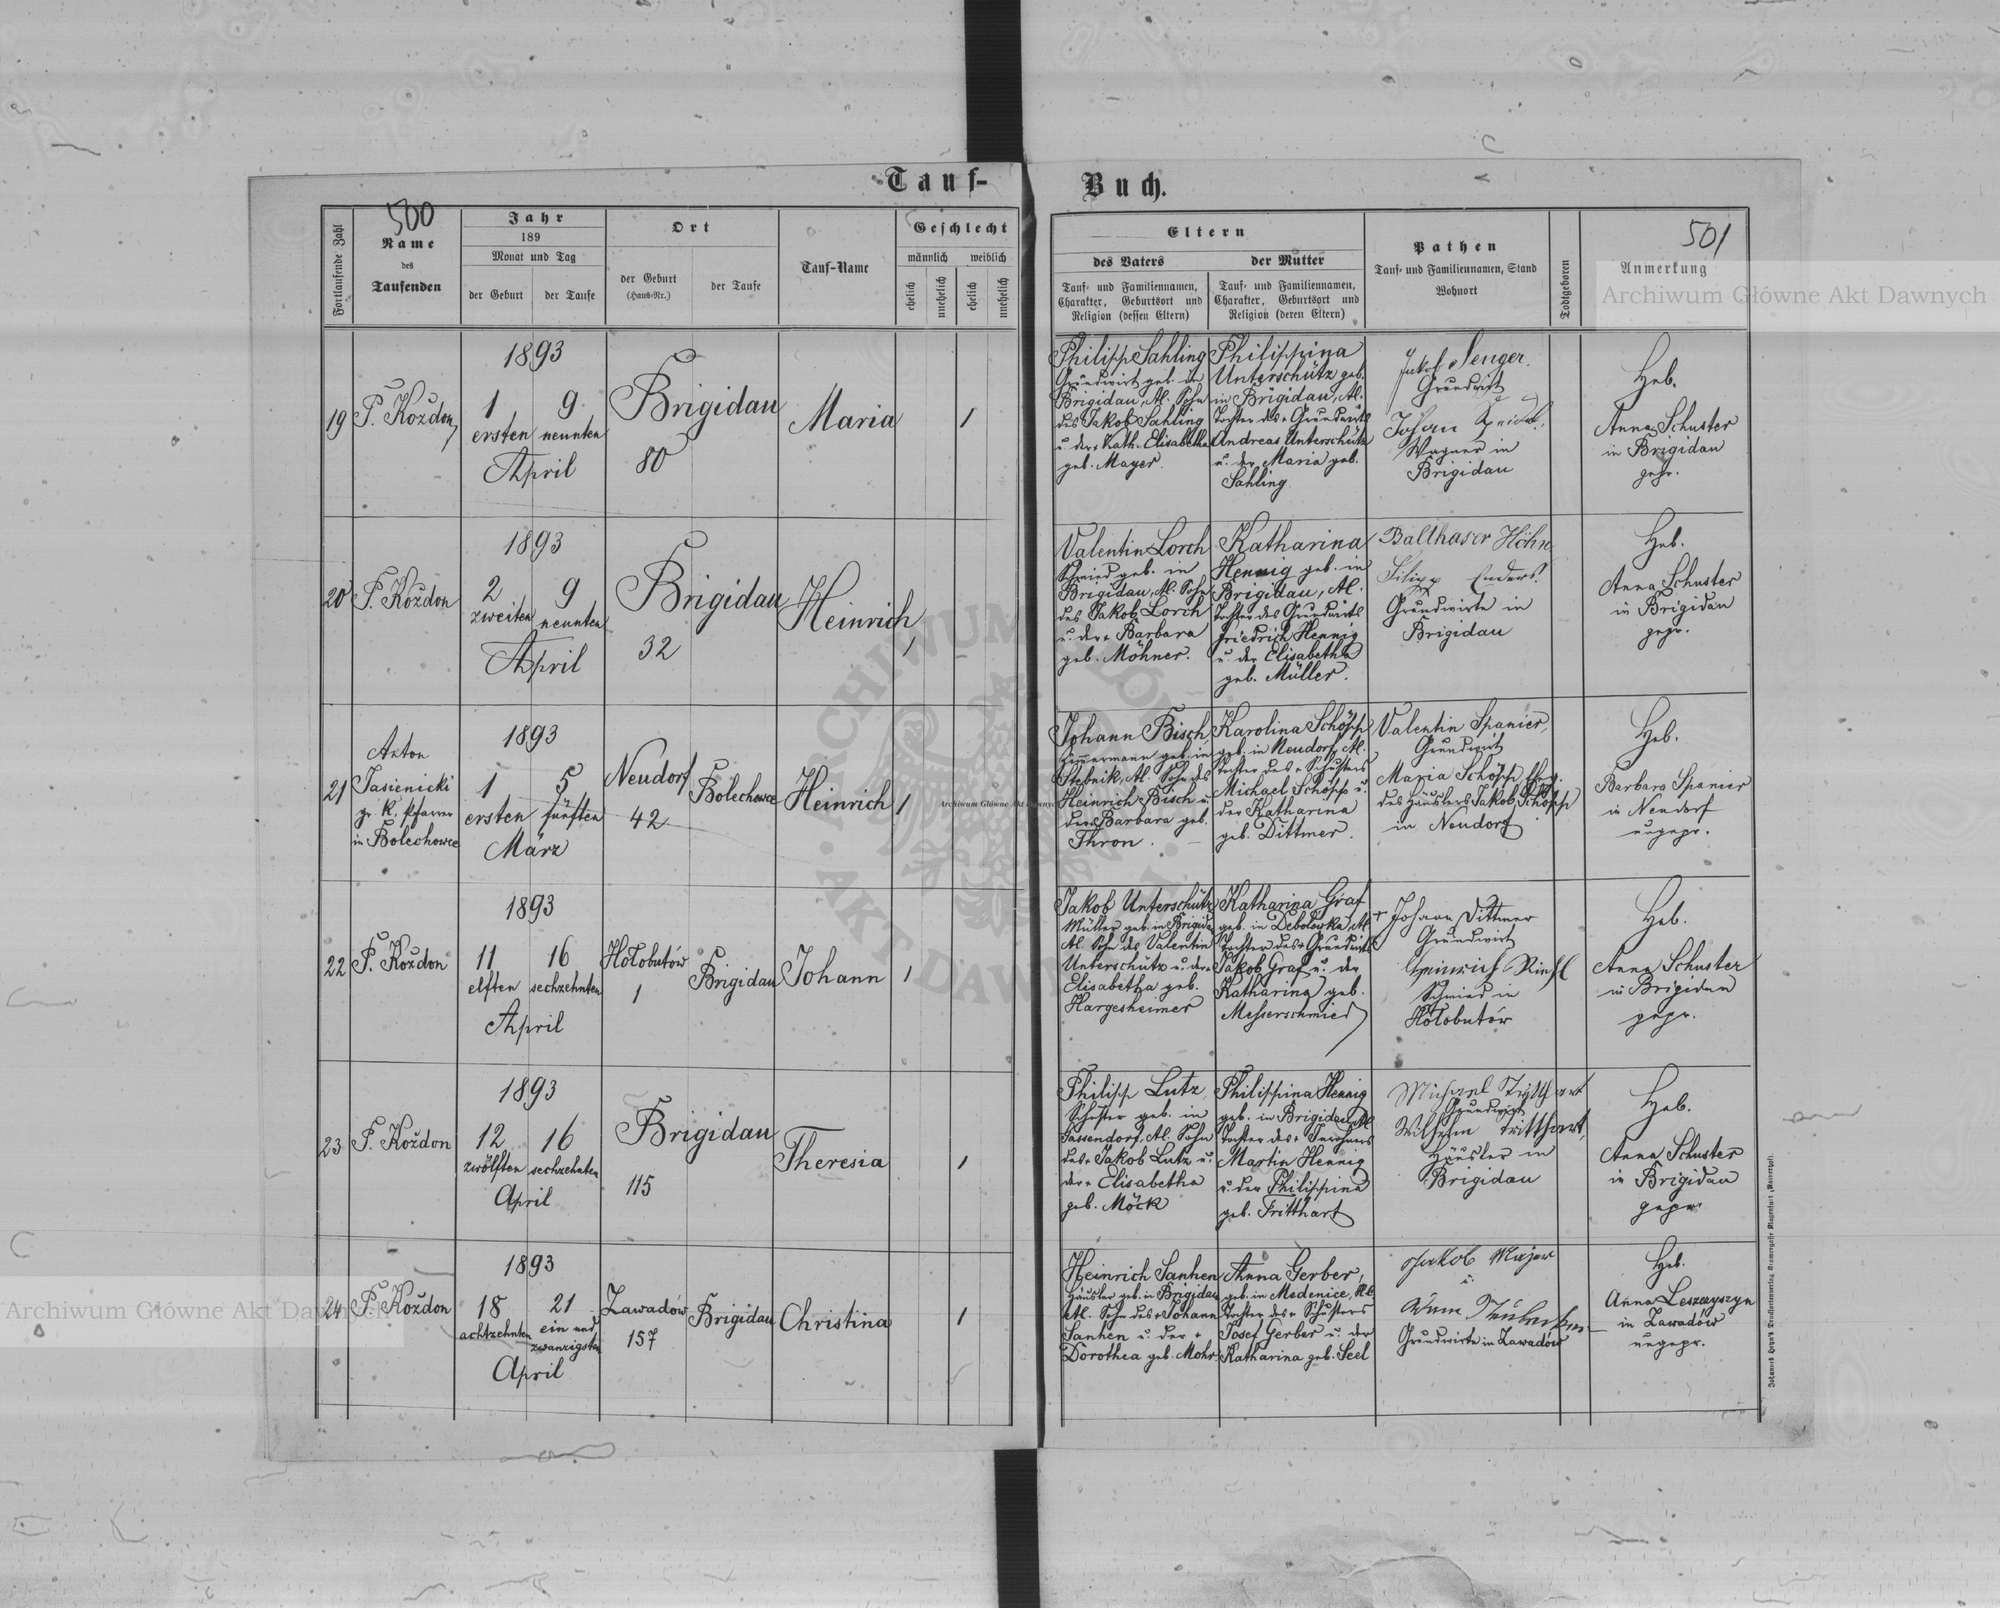 Tauf-
Buch.
500
501
Fortlaufende Zahl
Name
des
Taufenden
Jahr
189
Monat und Tag
der Geburt
der Taufe
Ort
der Geburt
(Haus-Nr.)
der Taufe
Tauf-Name
Geschlecht
männlich
weiblich
ehelich
unehelich
ehelich
unehelich
Eltern
des Vaters
Tauf- und Familiennamen,
Charakter, Geburtsort und
Religion (dessen Eltern)
der Mutter
Tauf- und Familiennamen,
Charakter, Geburtsort und
Religion (deren Eltern)
Pathen
Tauf- und Familiennamen, Stand
Wohnort
Todtgeboren
Anmerkung
Archiwum Główne Akt Dawnych
19
P. Koždon
1893
1
ersten
9
neunten
April
Brigidau
80
Maria
1
Philipp Sahling
Grundwirt geb. in
Brigidau, Al. Sohn
des Jakob Sahling
u. der + Kath. Elisabetha
geb. Mayer.
Philippina
Unterschütz geb.
in Brigidau, Al.
Tochter des + Grundwirts
Andreas Unterschütz
u. der Maria geb.
Sahling.
Jakob Senger.
Grundwirt
Johan
Wagner in
Brigidau
Heb.
Anna Schuster
in Brigidau
gepr.
20
P. Koždon
1893
2
zweiten
9
neunten
April
Brigidau
32
Heinrich
1
Valentin Lorch
Schmied geb. in
Brigidau, Al. Sohn
des Jakob Lorch
u. der + Barbara
geb. Möhner.
Katharina
Hennig geb. in
Brigidau, Al.
Tochter des Grundwirts
Friedrich Hennig
u. der Elisabetha
geb. Müller.
Balthaser Höhn
Filipp Enders.
Grundwirte in
Brigidau
Heb.
Anna Schuster
in Brigidau
gepr.
21
Anton
Jasienicki
gr. k. Pfarrer
in Bolechowce
1893
1
ersten
5
fünften
März
Neudorf
42
Bolechowce
Heinrich
1
Johann Bisch,
Zimmermann geb. in
Stebnik, Al. Sohn des
Heinrich Bisch u.
der + Barbara geb.
Thron.
Karolina Schöpp
geb. in Neudorf, Al.
Tochter des + Schusters
Michael Schöpp u.
der Katharina
geb. Dittmer.
Valentin Spanier,
Grundwirt
Maria Schöpp
des Häuslers Jakob Schöpp
in Neudorf
Heb.
Barbara Spanier
in Neudorf
ungepr.
22
P. Koždon
1893
11
elften
16
sechzehnten
April
Hołobutów
1
Brigidau
Johann
1
Jakob Unterschütz
Müller geb. in Brigidau
Al. Sohn des Valentin
Unterschütz u. der +
Elisabetha geb.
Hargesheimer
Katharina Graf
geb. in Debolówka, Al.
Tochter des + Grundwirts
Jakob Graf u. der
Katharina geb.
Messerschmied
+ Johann Dittmer
Grundwirt
Heinrich Riehl
Schmied in
Hołobutów
Heb.
Anna Schuster
in Brigidau
gepr.
23
P. Koždon
1893
12
zwölften
16
sechzehnten
April
Brigidau
115
Theresia
1
Philipp Lutz
Schuster geb. in
Sassendorf, Al. Sohn
des + Jakob Lutz u.
der + Elisabetha
geb. Möck
Philippina Hennig
geb. in Brigidau, Al.
Tochter des + Inwohners
Martin Hennig
u. der Philippina
geb. Tritthart
Michael Tritthart
Grundwirt
Wilhelm Tritthart,
Häusler in
Brigidau
Heb.
Anna Schuster
in Brigidau
gepr.
24
P. Koždon
1893
18
achtzehnten
21
ein und
zwanzigsten
April
Zawadów
157
Brigidau
Christina
1
Heinrich Sanhen
Häusler geb. in Brigidau
Al. Sohn des + Johann
Sanhen u. der +
Dorothea geb. Mohr
Anna Gerber,
geb. in Medenice, Al.
Tochter des + Schusters
Josef Gerber u. der
Katharina geb. Seel
Jakob Majer
u.
Grundwirte in Zawadów
Heb.
Anna Leszczyszyn
in Zawadów
ungepr.
Archiwum Główne Akt Dawnych
Archiwum Główne Akt Dawnych